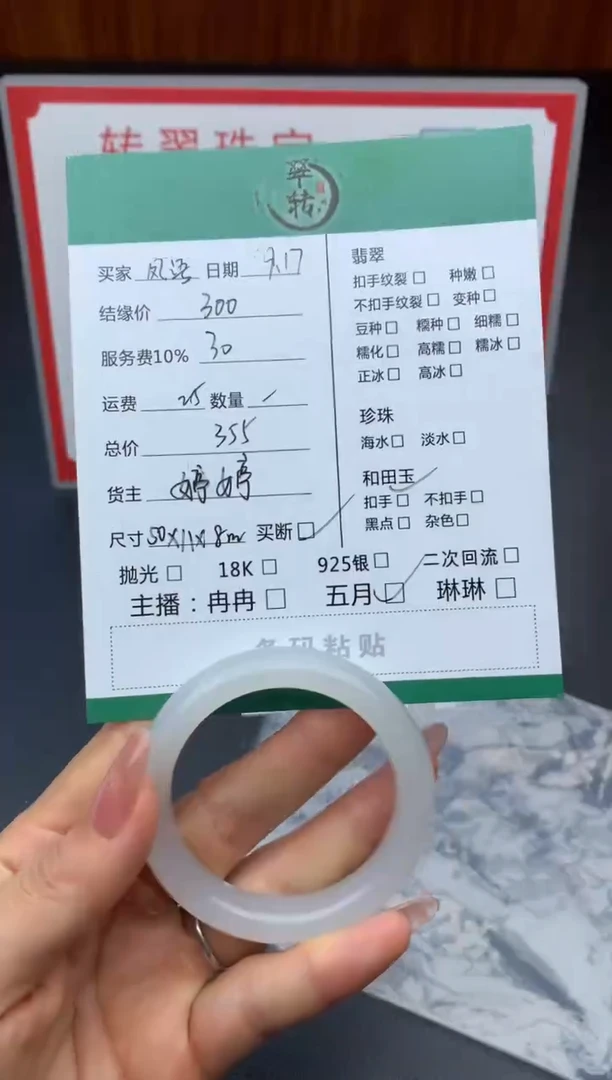 转翠珠宝
翠
转
买家 凤语 日期 9.17
结缘价 300
服务费10% 30
运费 25 数量
总价 355
货主 婷婷
尺寸 50×11×8m 买断☐
翡翠
扣手纹裂☐ 种嫩☐
不扣手纹裂☐ 变种☐
豆种☐ 糯种☐ 细糯☐
糯化☐ 高糯☐ 糯冰☐
正冰☐ 高冰☐
珍珠
海水☐ 淡水☐
和田玉
扣手☐ 不扣手☐
黑点☐ 杂色☐
抛光☐ 18K☐ 925银☐ 二次回流☐
主播：冉冉☐ 五月☐ 琳琳☐
条码粘贴